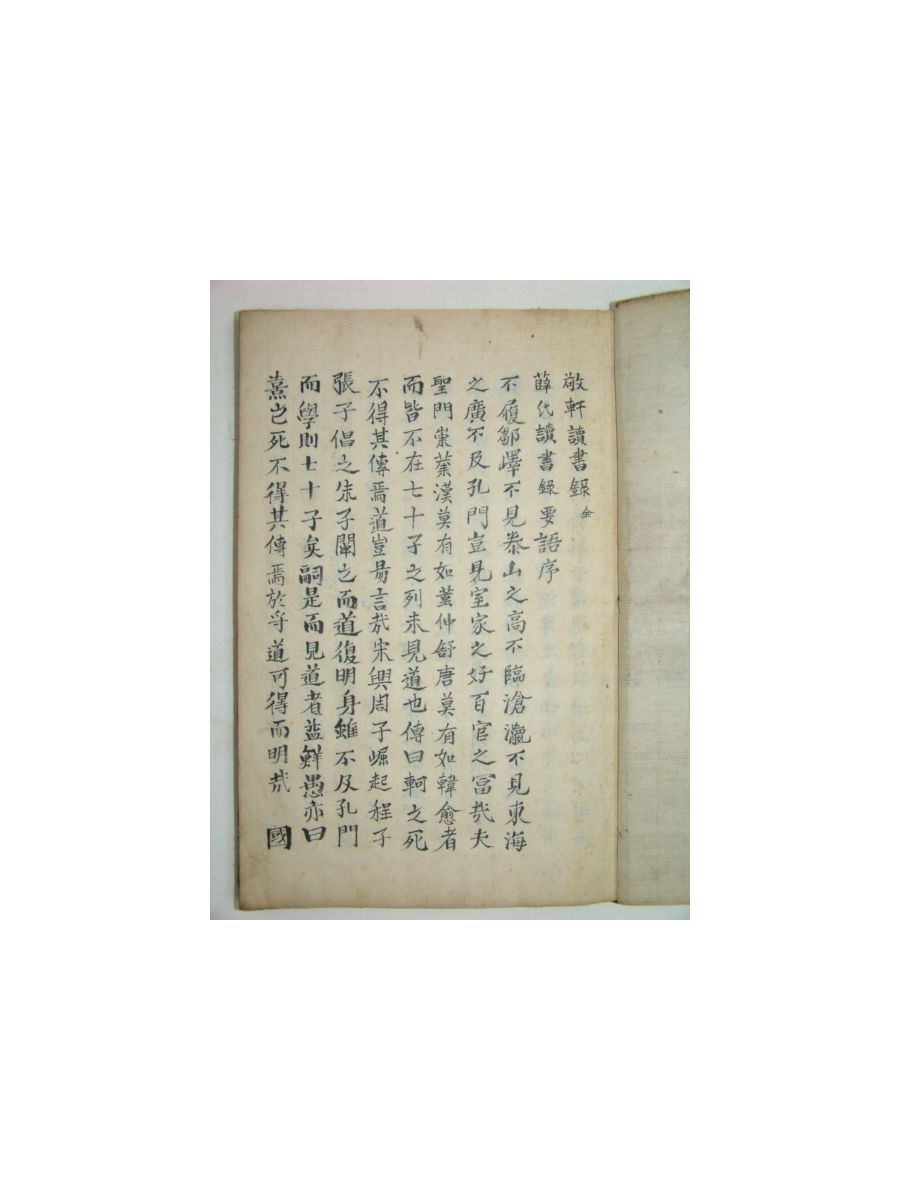 敬軒讀書録 全
薛氏讀書録要語序
不履鄒嶧不見泰山之高不臨滄瀛不見東海
之廣不及孔門豈見室家之好百官之富哉夫
聖門崇業漢莫有如董仲舒唐莫有如韓愈者
而皆不在七十子之列未見道也傳曰軻之死
不得其傳焉道豈易言哉宋興周子崛起程子
張子倡之朱子闡之而道復明身雖不及孔門
而學則七十子矣嗣是而見道者益鮮愚亦曰
熹之死不得其傳焉於乎道可得而明哉 國